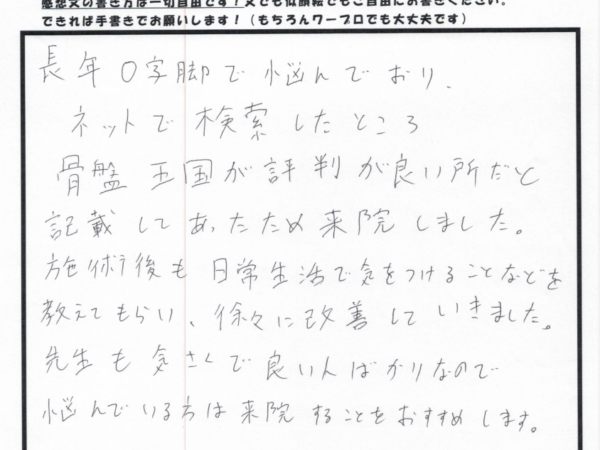 感想文の書き方は一切自由です！文でも似顔絵でもご自由にお書きください。
できれば手書きでお願いします！（もちろんワープロでも大丈夫です）
長年O字脚で悩んでおり、
ネットで検索したところ
骨盤王国が評判が良い所だと
記載してあったため来院しました。
施術後も日常生活で気をつけることなどを
教えてもらい、徐々に改善していきました。
先生も気さくで良い人ばかりなので
悩んでいる方は来院することをおすすめします。